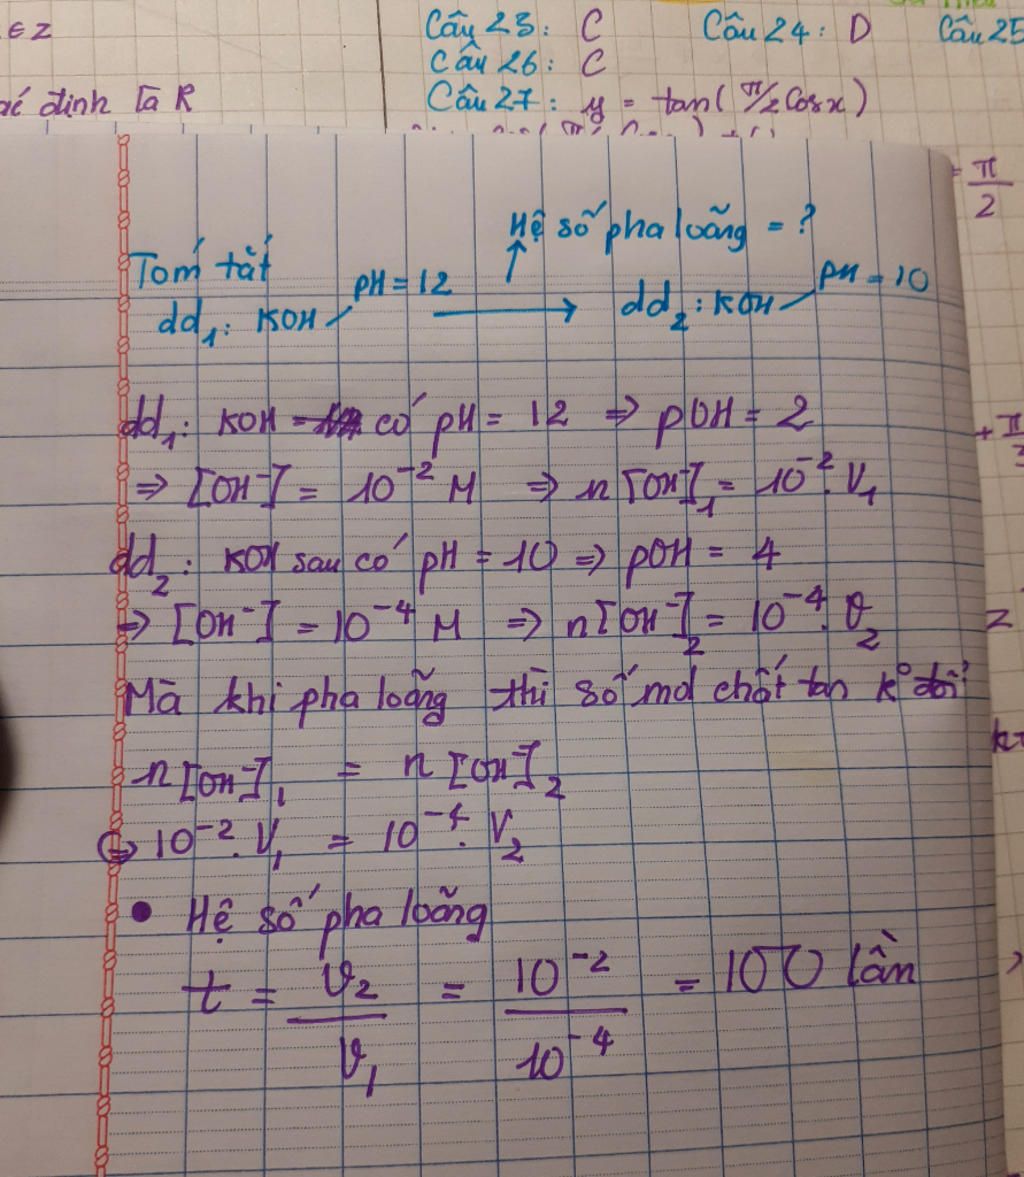 ∈ Z
Câu 23: C Câu 24: D Câu 25
Câu 26: C
đinh là R Câu 27: y = tan(π/2 Cosx)
= π/2
Hệ số pha loãng = ?
Tóm tắt
pH = 12 pH = 10
dd₁: KOH → dd₂: KOH
dd₁: KOH có pH = 12 ⇒ pOH = 2
⇒ [OH⁻] = 10⁻² M ⇒ n[OH⁻]₁ = 10⁻². V₁
dd₂: KOH sau có pH = 10 ⇒ pOH = 4
⇒ [OH⁻] = 10⁻⁴ M ⇒ n[OH⁻]₂ = 10⁻⁴. V₂
Mà khi pha loãng thì số mol chất tan k° đổi
n[OH⁻]₁ = n[OH⁻]₂
⇔ 10⁻². V₁ = 10⁻⁴. V₂
• Hệ số pha loãng
t = V₂/V₁ = 10⁻²/10⁻⁴ = 100 lần